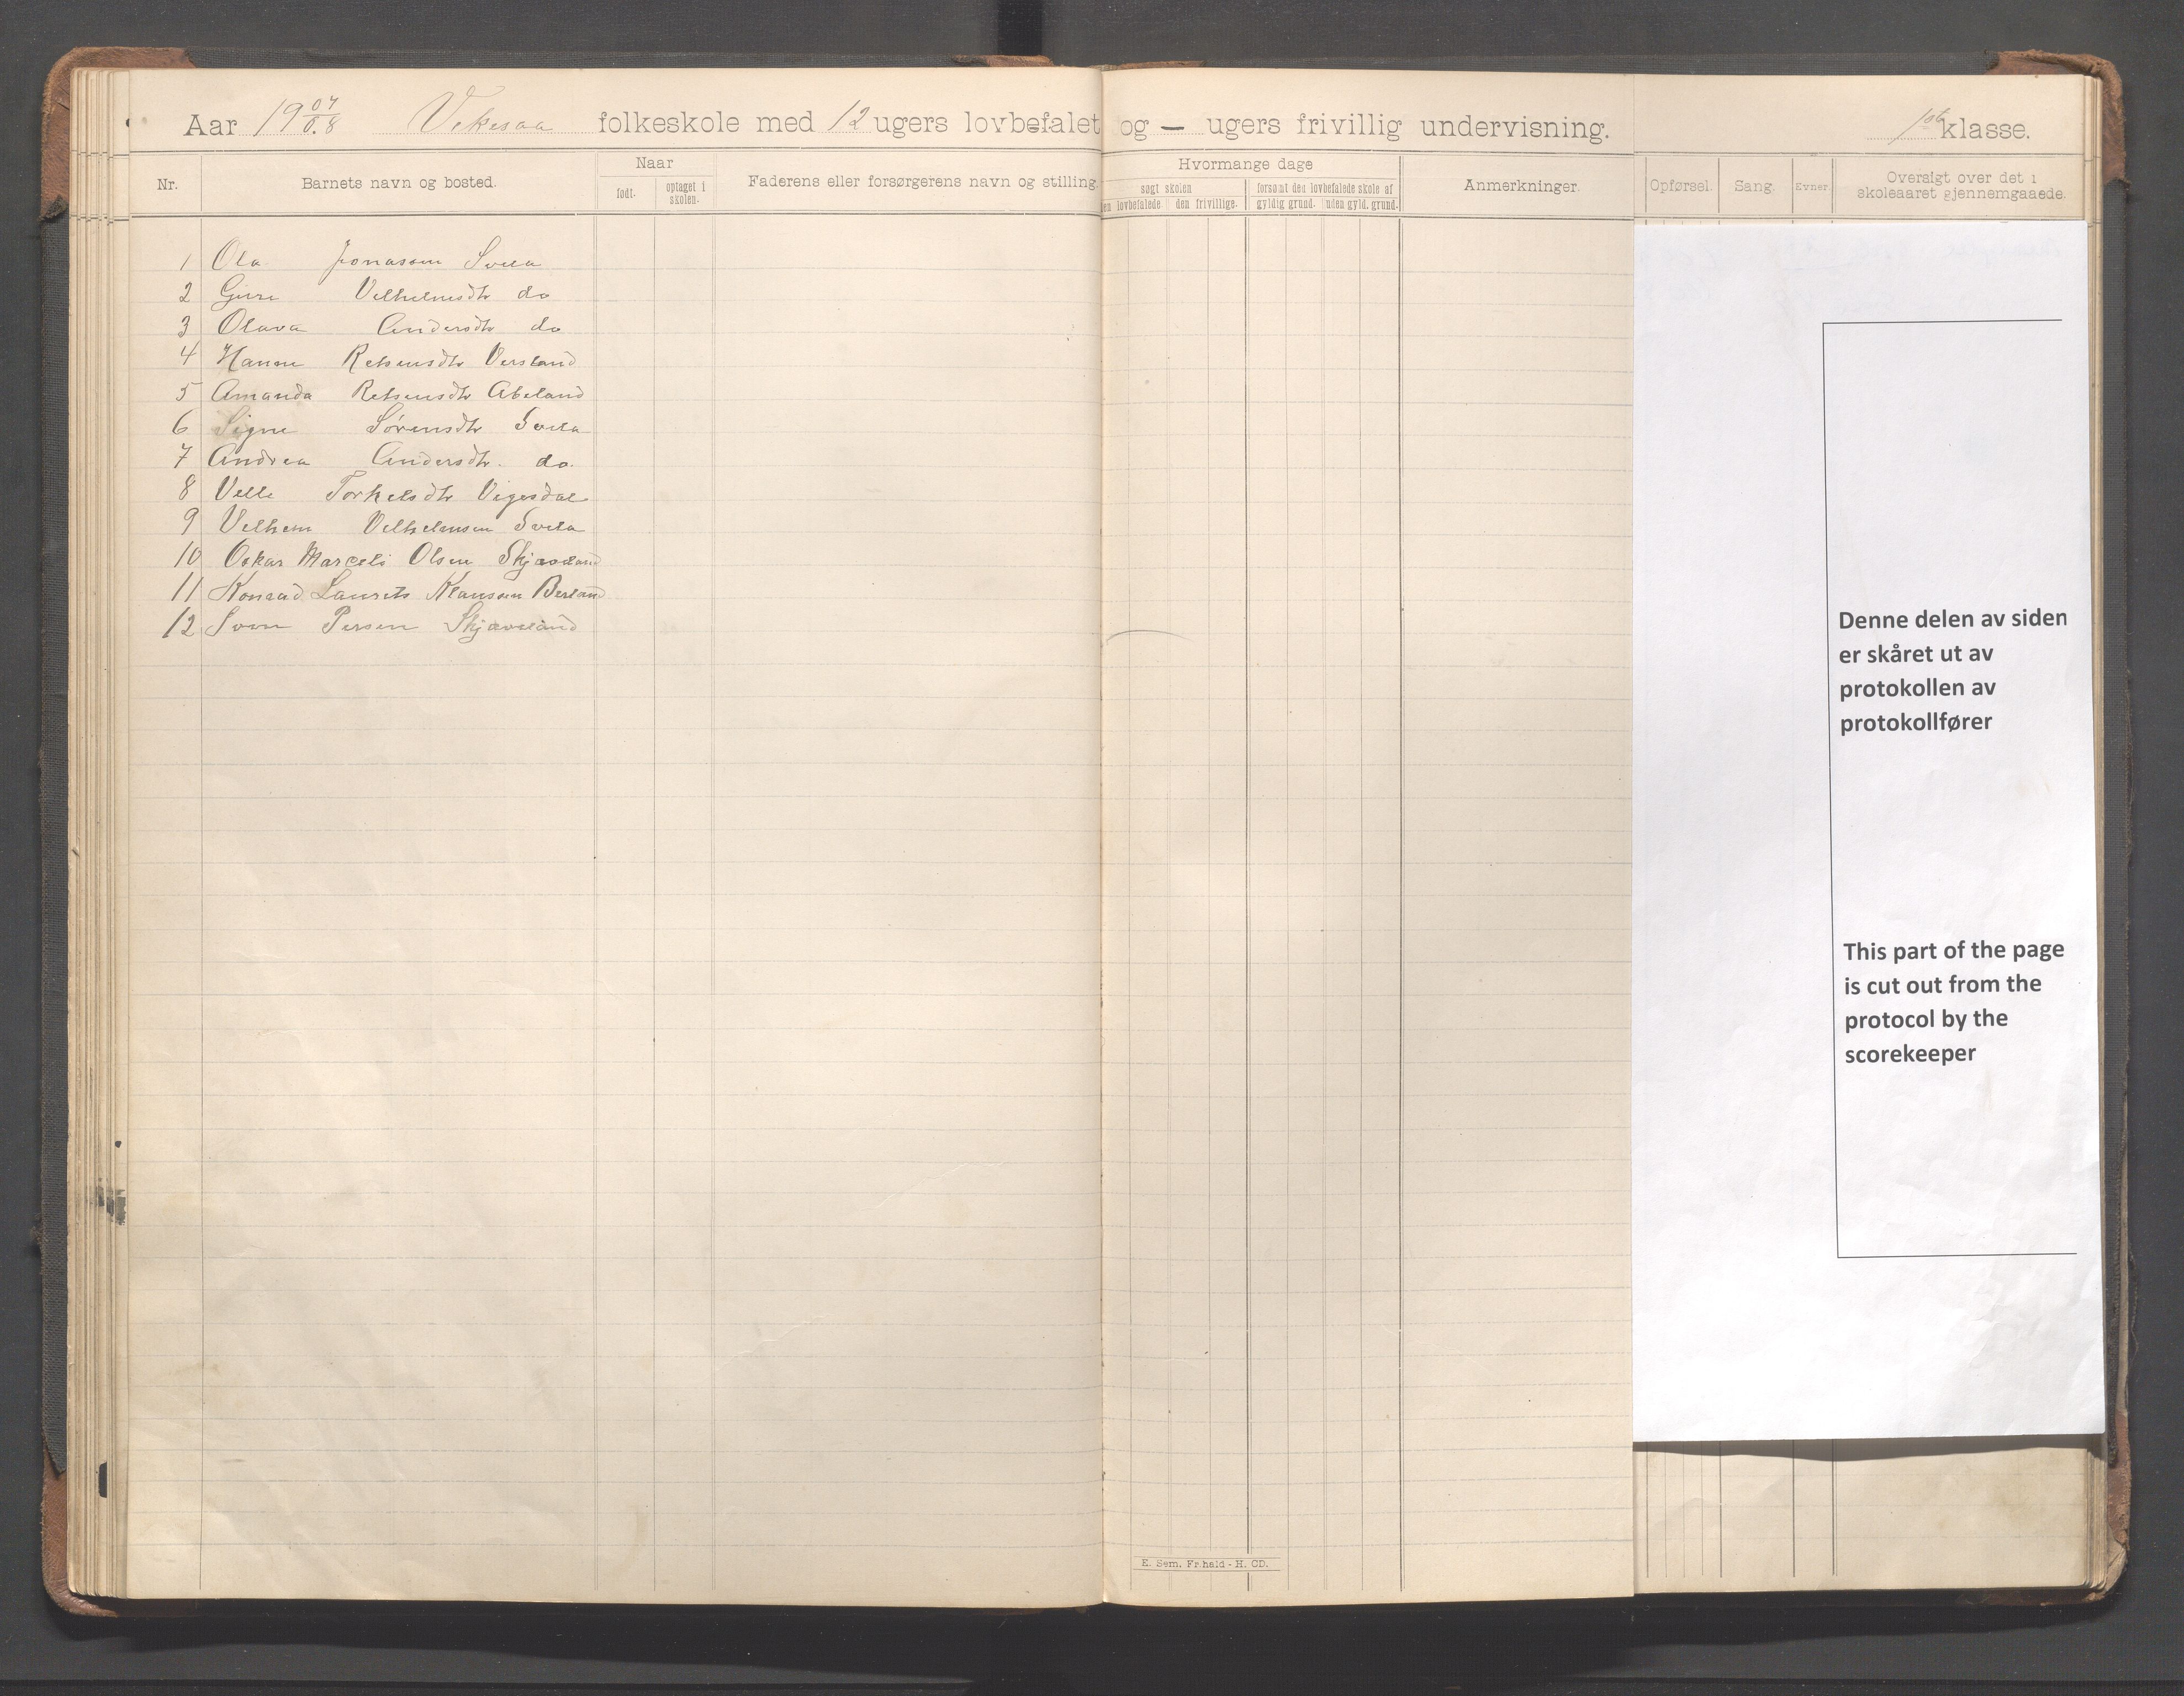 Aar 19 07/08 Vikesaa folkeskole med 12 ugers lovbefalet og — ugers frivillig undervisning. 1ste klasse.
Nr. Barnets navn og bosted. Naar født. optaget i skolen. Faderens eller forsørgerens navn og stilling. Hvormange dage søgt skolen den lovbefalede den frivillige. forsømt den lovbefalede skole af gyldig grund. uden gyld. grund. Anmerkninger. Opførsel. Sang. Evner. Oversigt over det i skoleaaret gjennemgaaede.
1 Ola Jonassen Svela
2 Vilhelmsdtr do
3 Olava Andersdtr do
4 Hanne Reinertsdtr
5 Amanda Abeland
6 Signe Sørensdtr Svela
7 Andrea Andersdtr. do.
8 Torkelsdtr Vigesdal
9 Vilhelm Vilhelmsen Svela
10 Oskar Marceli Olsen Skjæveland
11 Konrad Laurits Klausen Berland
12 Sven Persen Skjæveland
Denne delen av siden
er skåret ut av
protokollen av
protokollfører
This part of the page
is cut out from the
protocol by the
scorekeeper
E. Sem, Fr.hald - H. CD.